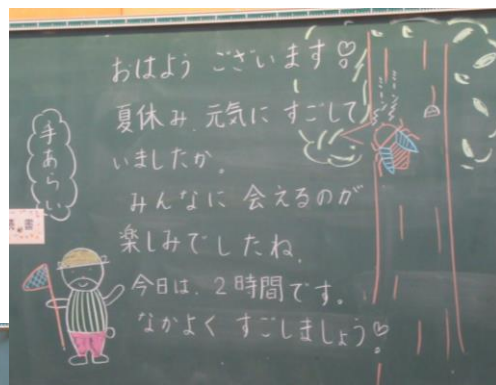 おはよう ございます!
夏休み、元気に すごして
いましたか。
みんなに 会えるのが
楽しみでしたね。
今日は、2時間です。
なかよく すごしましょう!
手あらい